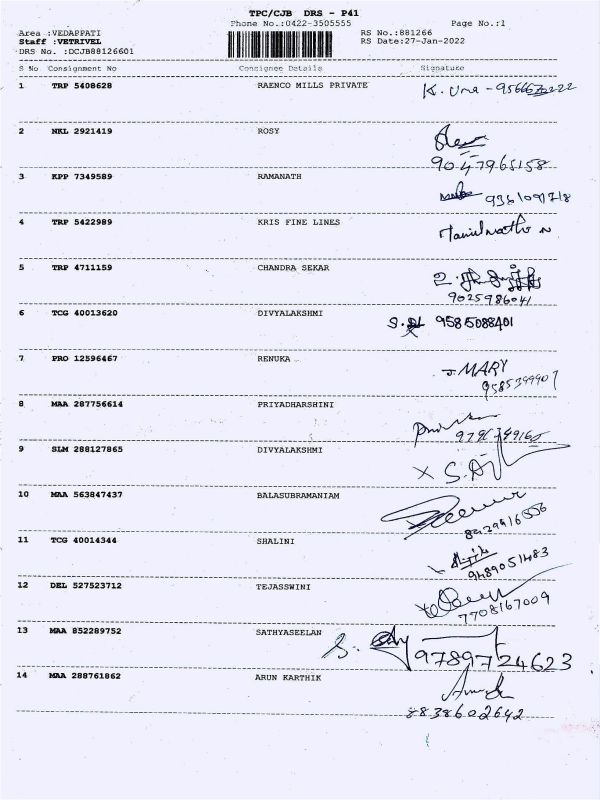 TPC/CJB DRS - P41
Phone No.:0422-3505555 Page No.:1
Area :VEDAPPATI RS No.:881266
Staff :VETRIVEL RS Date:27-Jan-2022
DRS No. :DCJB88126601
S No Consignment No Consignee Details Signature
1 TRP 5408628 RAENCO MILLS PRIVATE K. Uma -
2 NKL 2921419 ROSY
9047965158
3 KPP 7349589 RAMANATH
4 TRP 5422989 KRIS FINE LINES
5 TRP 4711159 CHANDRA SEKAR
9025986041
6 TCG 40013620 DIVYALAKSHMI 9585088401
7 PRO 12596467 RENUKA J. MARY
9585399907
8 MAA 287756614 PRIYADHARSHINI
9 SLM 288127865 DIVYALAKSHMI
10 MAA 563847437 BALASUBRAMANIAM
11 TCG 40014344 SHALINI
9489051483
12 DEL 527523712 TEJASSWINI
7708167009
13 MAA 852289752 SATHYASEELAN S.
9789724623
14 MAA 288761862 ARUN KARTHIK
8838602642